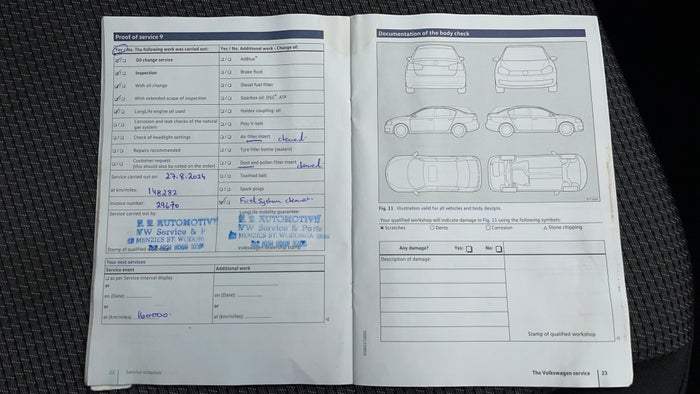 Proof of service 9
Yes / No. The following work was carried out:
Oil change service
Inspection
With oil change
With extended scope of inspection
LongLife engine oil used
Corrosion and leak checks of the natural
gas system
Check of headlight settings
Repairs recommended
Customer request
(this should also be noted on the order)
Service carried out on: 27.8.2024
at km/miles: 148282
Invoice number: 29670
Service carried out by:
AUTOMOTIV
VW Service & P
MENZILS ST.
Stamp of qualified
Yes / No. Additional work - Change of:
AdBlue®
Brake fluid
Diesel fuel filter
Gearbox oil: DSG®, ATF
Haldex coupling: oil
Poly V-belt
Air filter insert cleaned.
Tyre filler bottle (sealant)
Dust and pollen filter insert cleaned.
Toothed belt
Spark plugs
Fuel System cleaner
LongLife mobility guarantee:
AUTOMOTIV
VW Service & Parts
MENZILS ST.
Your next services
Service event
as per Service interval display
or
on (Date):
or
at (km/miles): 160000.
Additional work
on (Date):
or
at (km/miles):
22
Service schedule
Documentation of the body check
Fig. 11 Illustration valid for all vehicles and body designs.
Your qualified workshop will indicate damage in Fig. 11 using the following symbols:
× Scratches O Dents □ Corrosion △ Stone chipping
Any damage? Yes: No:
Description of damage:
Stamp of qualified workshop
The Volkswagen service 23